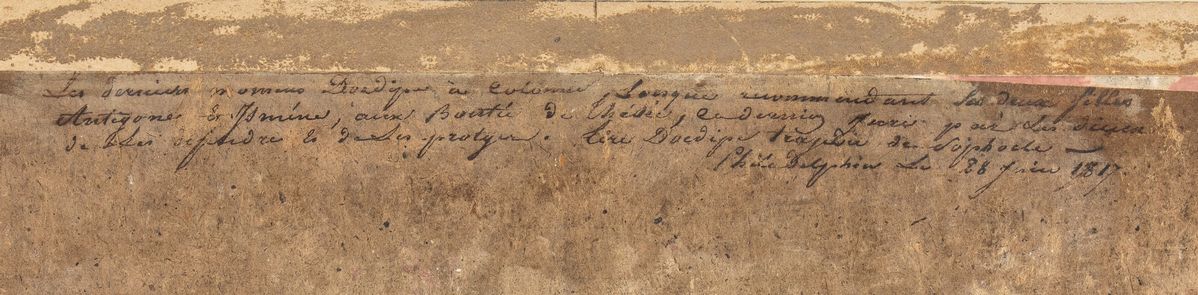 Les derniers momens Doedipe à Colonne, Lorsque recommandant Ses deux filles
Antigone & Ismène, aux Bontés de Thésée, ce dernier jure par Les Dieux
de Les défendre & de Les protger. tiré Doedipe tragédie de Sophocle —
Philadelphia Le 28 1817.